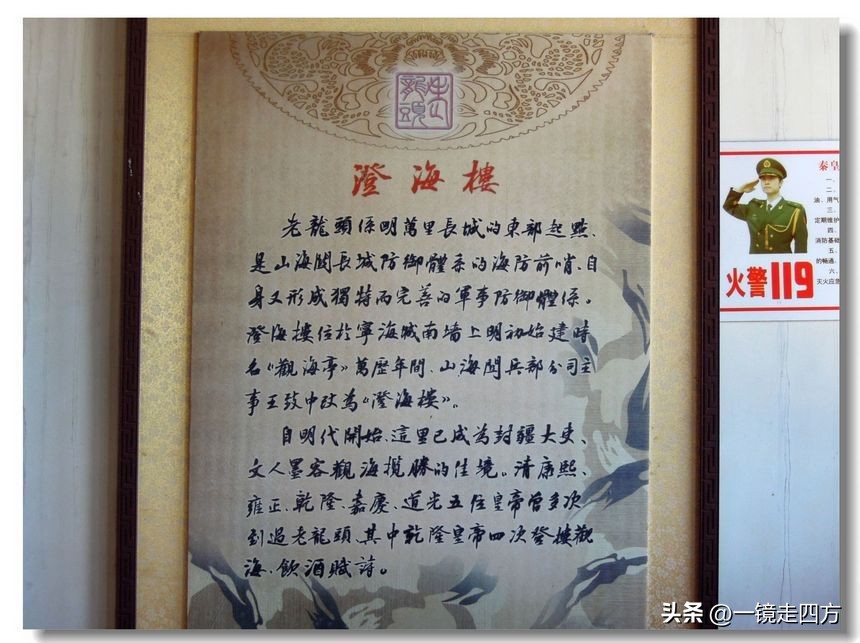 老龍頭
澄海樓
老龍頭係明萬里長城的東部起點、
是山海関長城防御體系的海防前哨、自
身又形成獨特而完善的軍事防御體係。
澄海樓位於寧海城南墙上明初始建時
名《觀海亭》萬歷年間、山海関兵部分司主
事王致中改為《澄海樓》。
自明代開始、這里已成為封疆大吏、
文人墨客觀海攬勝的佳境。清康熙、
雍正、乾隆、嘉慶、道光五位皇帝曾多次
到過老龍頭、其中乾隆皇帝四次登樓觀
海、飲酒賦詩。
秦皇
一、
二、
油、用气
三、
定期维护
四、
消防基础
五、
的畅通、
六、
灭火应急
火警119
头条 @一镜走四方